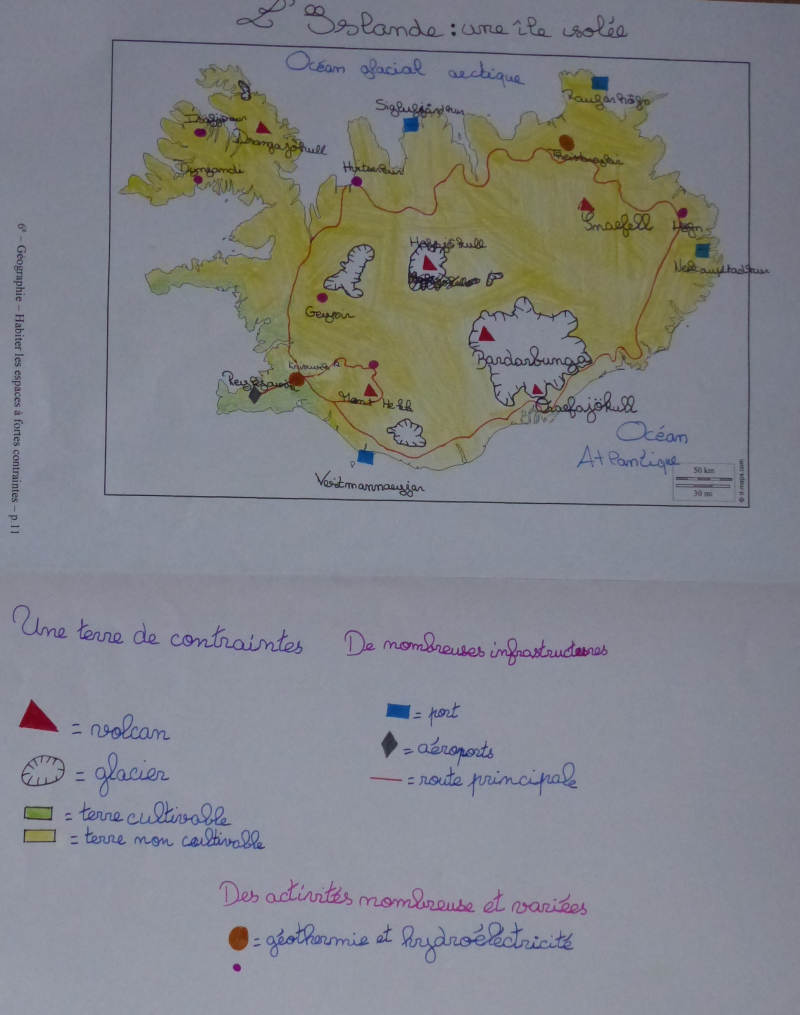 L'Islande : une île isolée
Océan glacial arctique
Siglufjördur
Drangajökull
Dynjandi
Snaefell
Höfn
Hofsjökull
Geysir
Bardarbunga
Reykjavik
Mont Hekla
Océan
Atlantique
50 km
30 mi
© d-maps.com
Vestmannaeyjar
6e – Géographie – Habiter les espaces à fortes contraintes – p.11
Une terre de contraintes
= volcan
= glacier
= terre cultivable
= terre non cultivable
De nombreuses infrastructures
= port
= aéroports
= route principale
Des activités nombreuse et variées
= géothermie et hydroélectricité